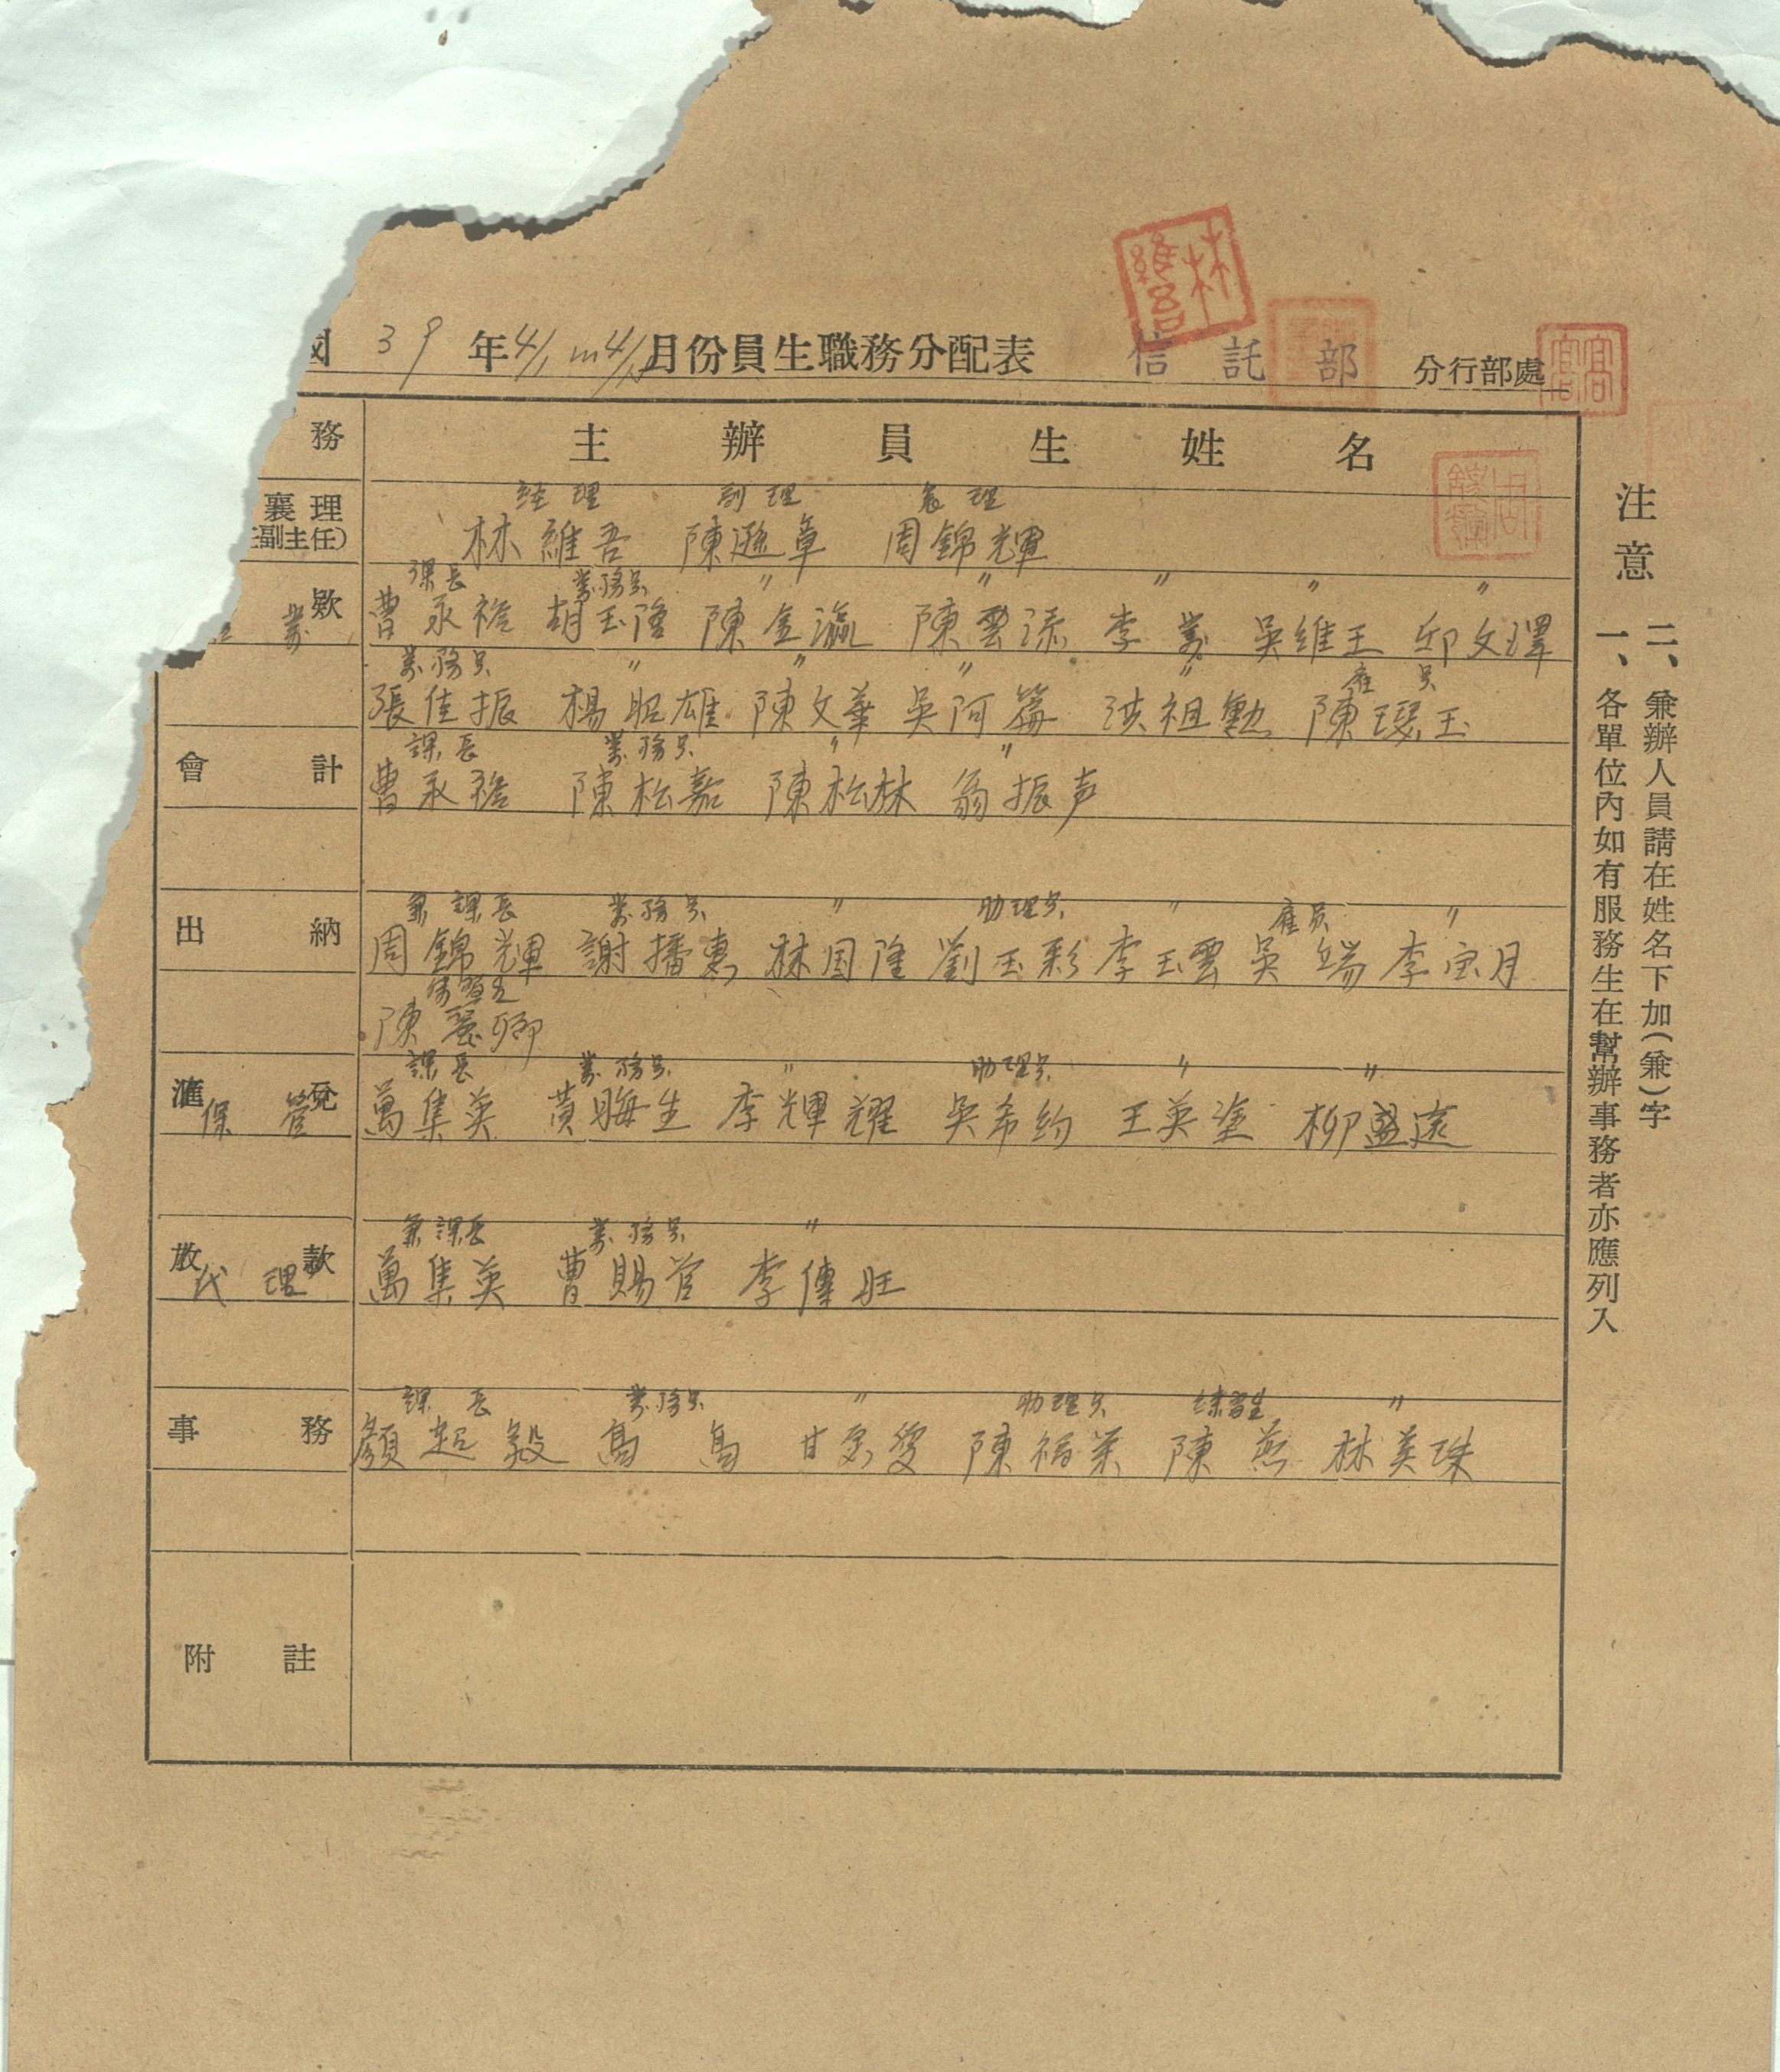 39年4/1 月份員生職務分配表 信託部 分行部處
林維吾
務 主辦員生姓名
經理 副理 襄理
襄理 林維吾 陳遜章 周錦輝
副主任)
課長 業務員 〃 〃 〃 〃 〃
欵 業 曹永裕 胡玉隆 陳金瀛 陳雲添 李 吳維王 邱文澤
業務員 〃 〃 〃 〃 雇員
張佳振 楊昭雄 陳文華 吳阿篇 洪祖勳 陳璦玉
課長 業務員 〃 〃
會計 曹永裕 陳松嘉 陳松林 翁振声
兼課長 業務員 〃 助理員 〃 雇員 〃
出納 周錦輝 謝播惠 林国隆 劉玉彩 李玉雲 吳端 李宝月
練習生
陳麗卿
課長 業務員 〃 助理員 〃 〃
滙兌 保管 萬集英 黃海生 李輝耀 吳希約 王英塗 柳盛遠
兼課長 業務員 〃
放款 代理 萬集英 曹賜官 李傳旺
課長 業務員 〃 助理員 練習生 〃
事務 顏超毅 陳福業 陳燕 林美珠
附註
注意
一、各單位內如有服務生在幫辦事務者亦應列入
二、兼辦人員請在姓名下加(兼)字